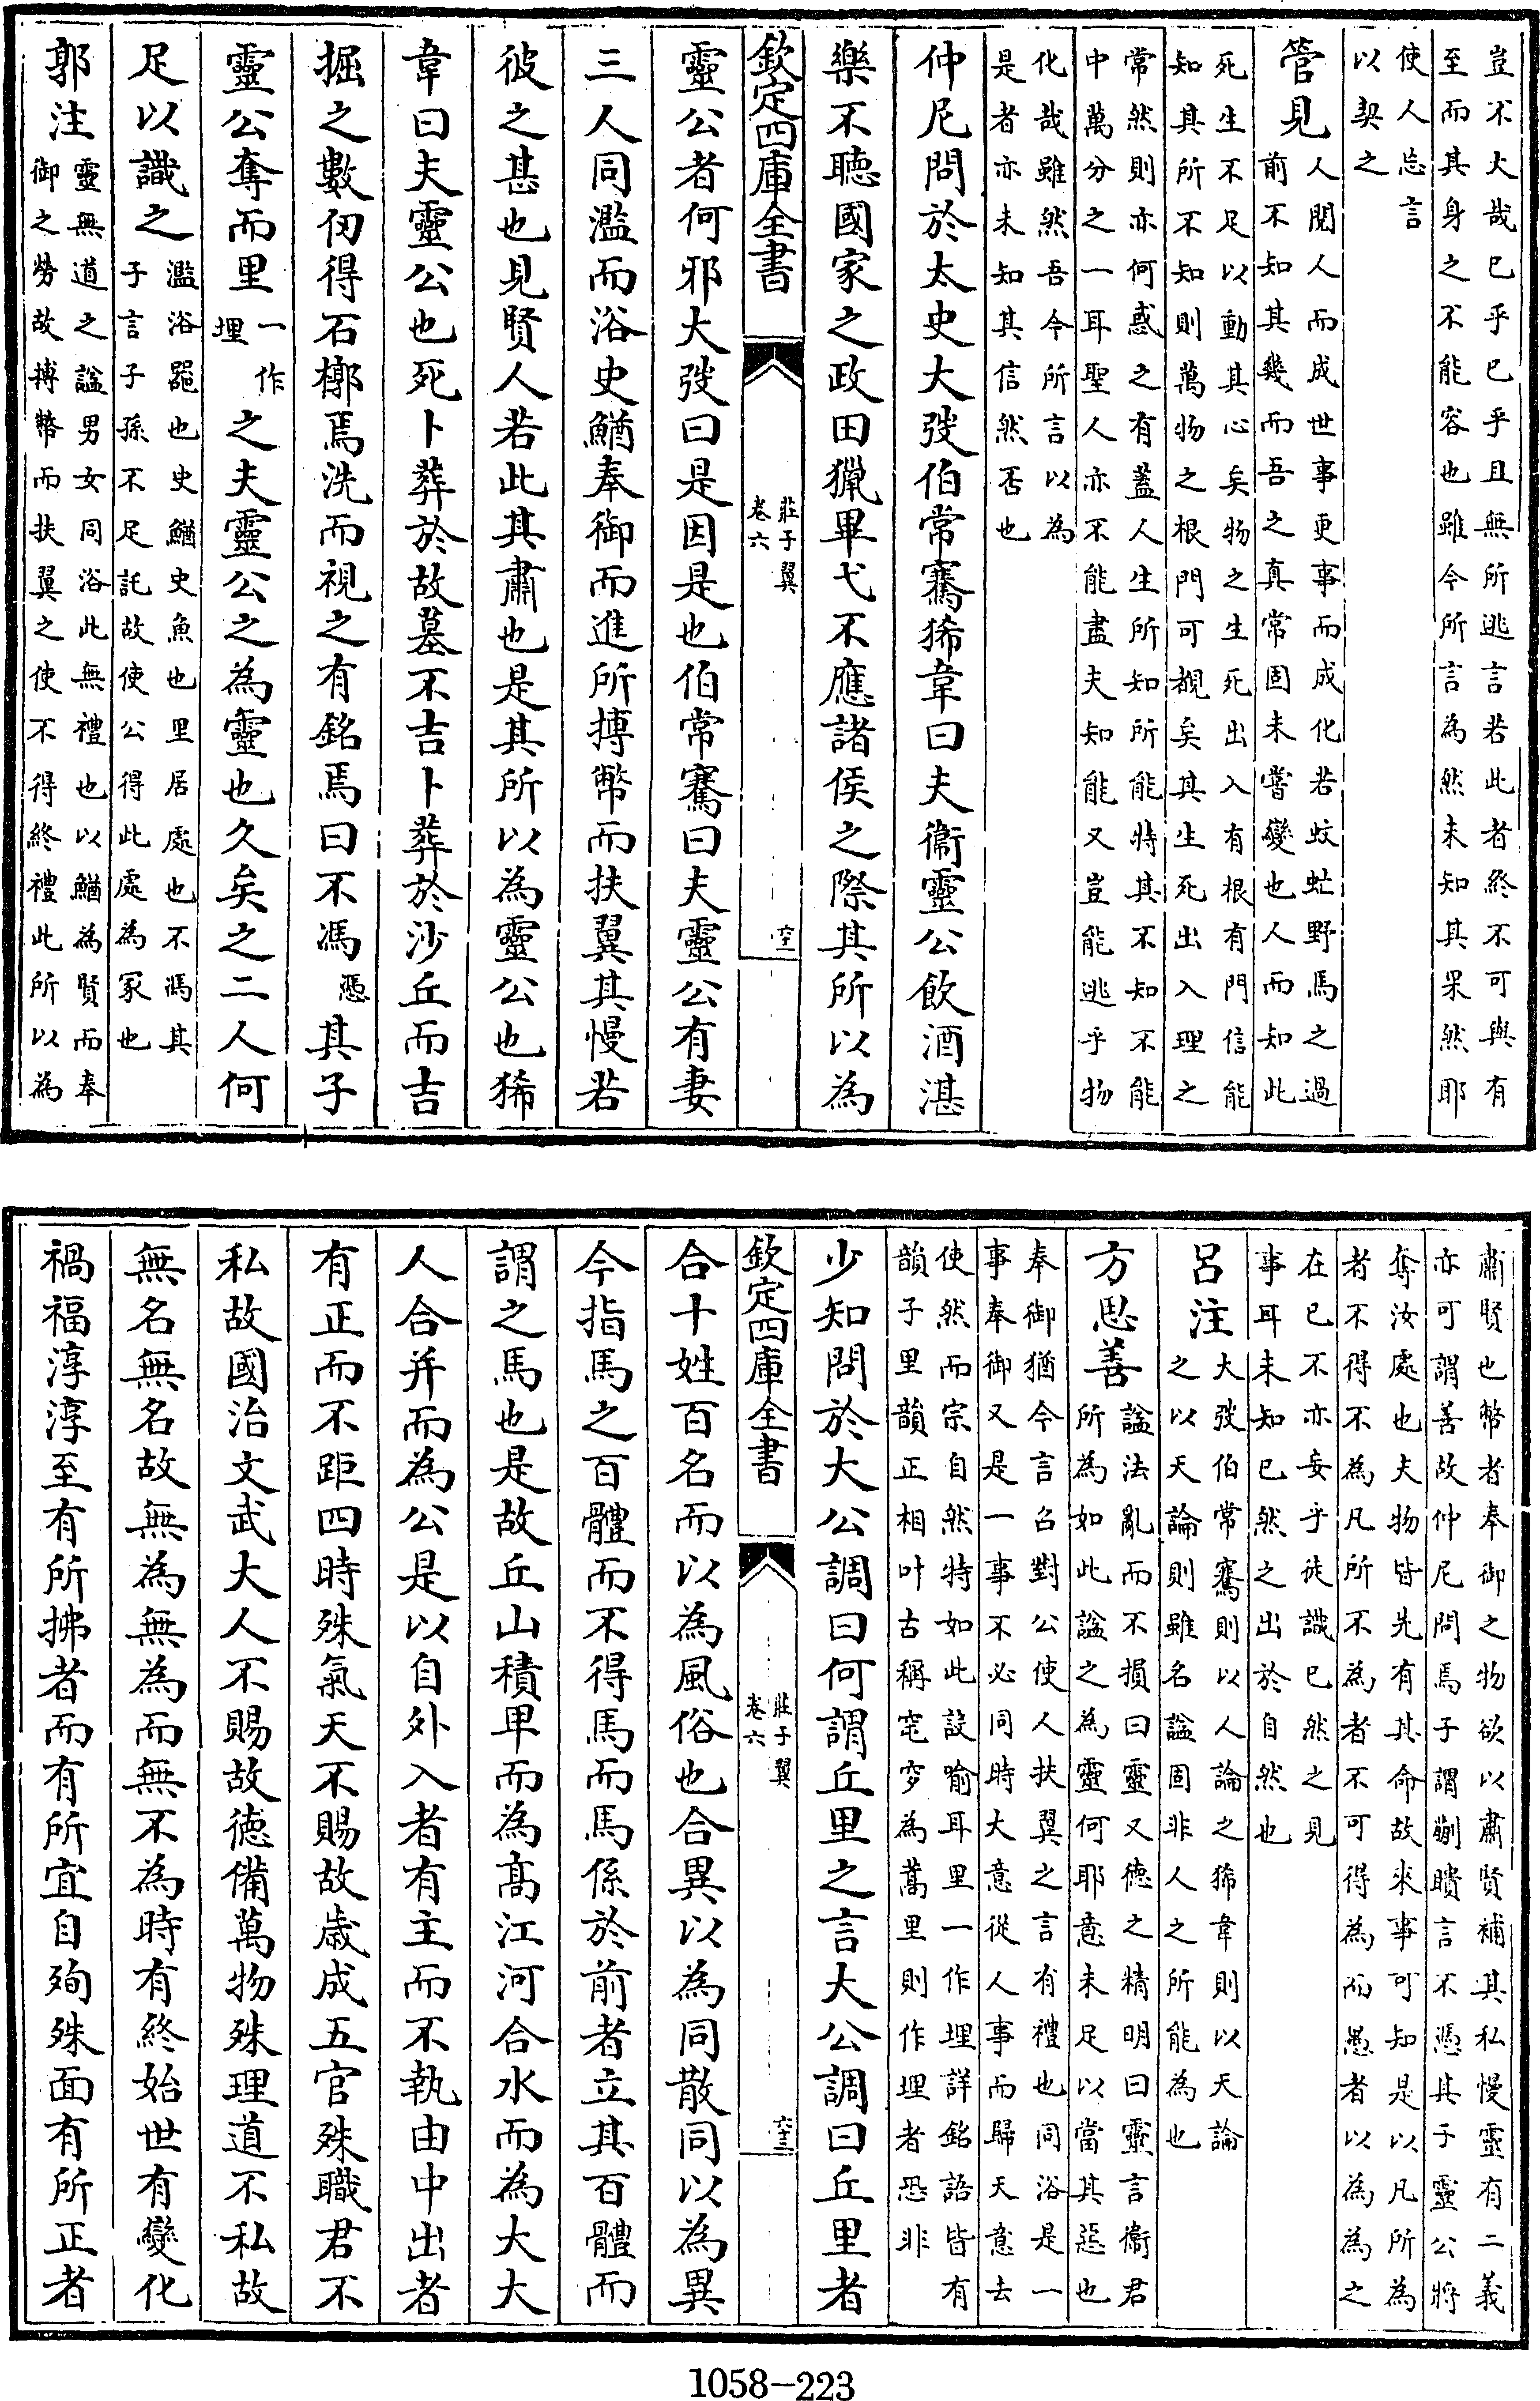 豈不大哉已乎已乎且無所逃言若此者終不可與有
至而其身之不能容也雖今所言為然未知其果然耶
使人忘言
以契之
管見人閱人而成世事更事而成化若蚊虻野馬之過
前不知其幾而吾之真常固未嘗變也人而知此
死生不足以動其心矣物之生死出入有根有門信能
知其所不知則萬物之根門可覩矣其生死出入理之
常然則亦何惑之有蓋人生所知所能特其不知不能
中萬分之一耳聖人亦不能盡夫知能又豈能逃乎物
化哉雖然吾今所言以為
是者亦未知其信然否也
仲尼問於太史大弢伯常騫狶韋曰夫衞靈公飲酒湛
樂不聽國家之政田獵畢弋不應諸侯之際其所以為
欽定四庫全書
莊子翼
卷六
六十二
靈公者何邪大弢曰是因是也伯常騫曰夫靈公有妻
三人同濫而浴史鰌奉御而進所搏幣而扶翼其慢若
彼之甚也見賢人若此其肅也是其所以為靈公也狶
韋曰夫靈公也死卜葬於故墓不吉卜葬於沙丘而吉
掘之數仞得石槨焉洗而視之有銘焉曰不馮憑其子
靈公奪而里一作埋之夫靈公之為靈也久矣之二人何
足以識之濫浴器也史鰌史魚也里居處也不馮其
子言子孫不足託故使公得此處為冢也
郭注靈無道之諡男女同浴此無禮也以鰌為賢而奉
御之勞故搏幣而扶翼之使不得終禮此所以為
肅賢也幣者奉御之物欲以肅賢補其私慢靈有二義
亦可謂善故仲尼問焉子謂蒯瞶言不憑其子靈公將
奪汝處也夫物皆先有其命故來事可知是以凡所為
者不得不為凡所不為者不可得為而愚者以為為之
在已不亦妄乎徒識已然之見
事耳未知已然之出於自然也
呂注大弢伯常騫則以人論之狶韋則以天論
之以天論則雖名諡固非人之所能為也
方思善諡法亂而不損曰靈又德之精明曰靈言衞君
所為如此諡之為靈何耶意未足以當其惡也
奉御猶今言召對公使人扶翼之言有禮也同浴是一
事奉御又是一事不必同時大意從人事而歸天意去
使然而宗自然特如此設喻耳里一作埋詳銘語皆有
韻子里韻正相叶古稱窀穸為蒿里則作埋者恐非
少知問於大公調曰何謂丘里之言大公調曰丘里者
欽定四庫全書
莊子翼
卷六
六十三
合十姓百名而以為風俗也合異以為同散同以為異
今指馬之百體而不得馬而馬係於前者立其百體而
謂之馬也是故丘山積卑而為高江河合水而為大大
人合并而為公是以自外入者有主而不執由中出者
有正而不距四時殊氣天不賜故歲成五官殊職君不
私故國治文武大人不賜故德備萬物殊理道不私故
無名無名故無為無為而無不為時有終始世有變化
禍福淳淳至有所拂者而有所宜自殉殊面有所正者
1058-223